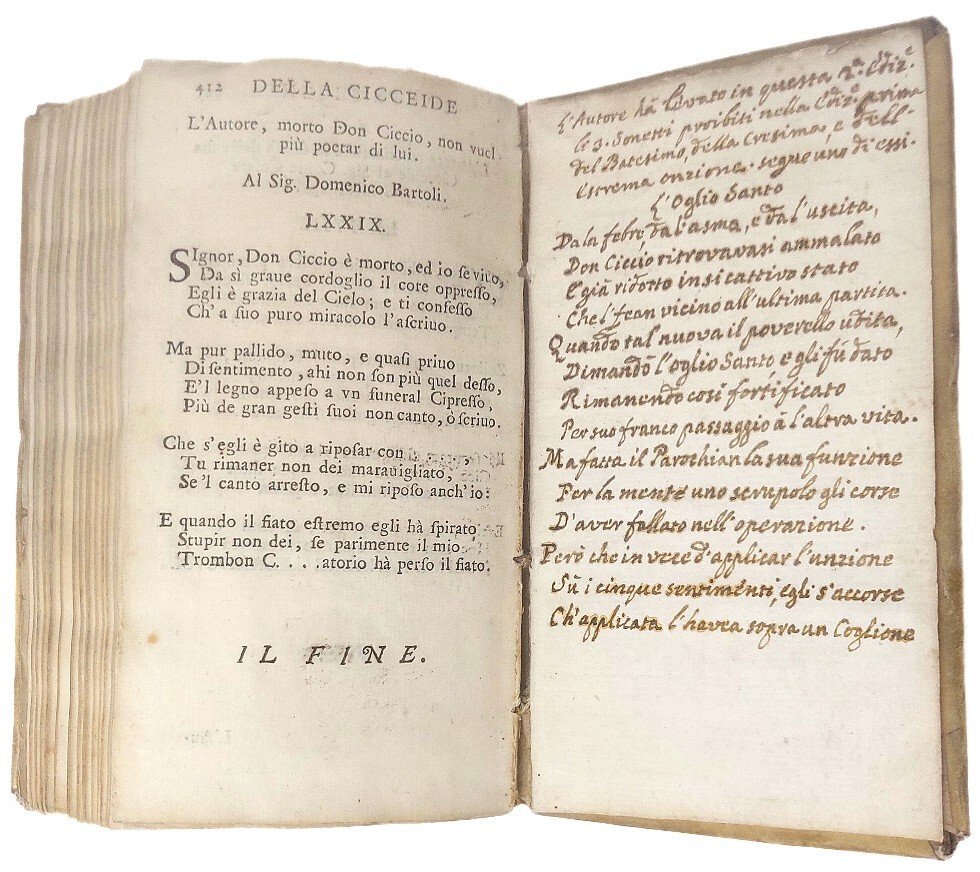 412 DELLA CICCEIDE
L'Autore, morto Don Ciccio, non vuel
più poetar di lui.
Al Sig. Domenico Bartoli.
LXXIX.
SIgnor, Don Ciccio è morto, ed io se vivo,
Da sì graue cordoglio il core oppreſſo,
Egli è grazia del Cielo; e ti confeſſo
Ch'a ſuo puro miracolo l'aſcriuo.
Ma pur pallido, muto, e quaſi priuo
Di ſentimento, ahi non ſon più quel deſſo,
E'l legno appeſo a vn funeral Cipreſſo,
Più de gran geſti ſuoi non canto, ò ſcriuo.
Che s'egli è gito a ripoſar con
Tu rimaner non dei marauigliato,
Se'l canto arreſto, e mi ripoſo anch'io:
E quando il fiato eſtremo egli hà ſpirato,
Stupir non dei, ſe parimente il mio
Trombon C. . . . atorio hà perſo il fiato.
IL FINE.
L'Autore hà levato in questa 2.ª Ediz.e
li 3. Sonetti proibiti nella Ediz.e prima
del Batesimo, della Cresima, e dell'
Estrema onzione. segue uno di essi.
L'Oglio Santo
Da la febre, da l'asma, e da l'uscita,
Don Ciccio ritrovavasi ammalato
E già ridotto in sì cattivo stato
Che l'fean vicino all'ultima partita.
Quando tal nuova il poverello udita,
Dimandò l'oglio Santo, e gli fù dato
Rimanendo così fortificato
Per suo franco passaggio à l'altra vita.
Ma fatta il Parochian la sua funzione
Per la mente uno scrupolo gli corse
D'aver fallato nell'operazione.
Però che in vece d'applicar l'unzione
Sù i cinque sentimenti, egli s'accorse
Ch'applicata l'havea sopra un Coglione